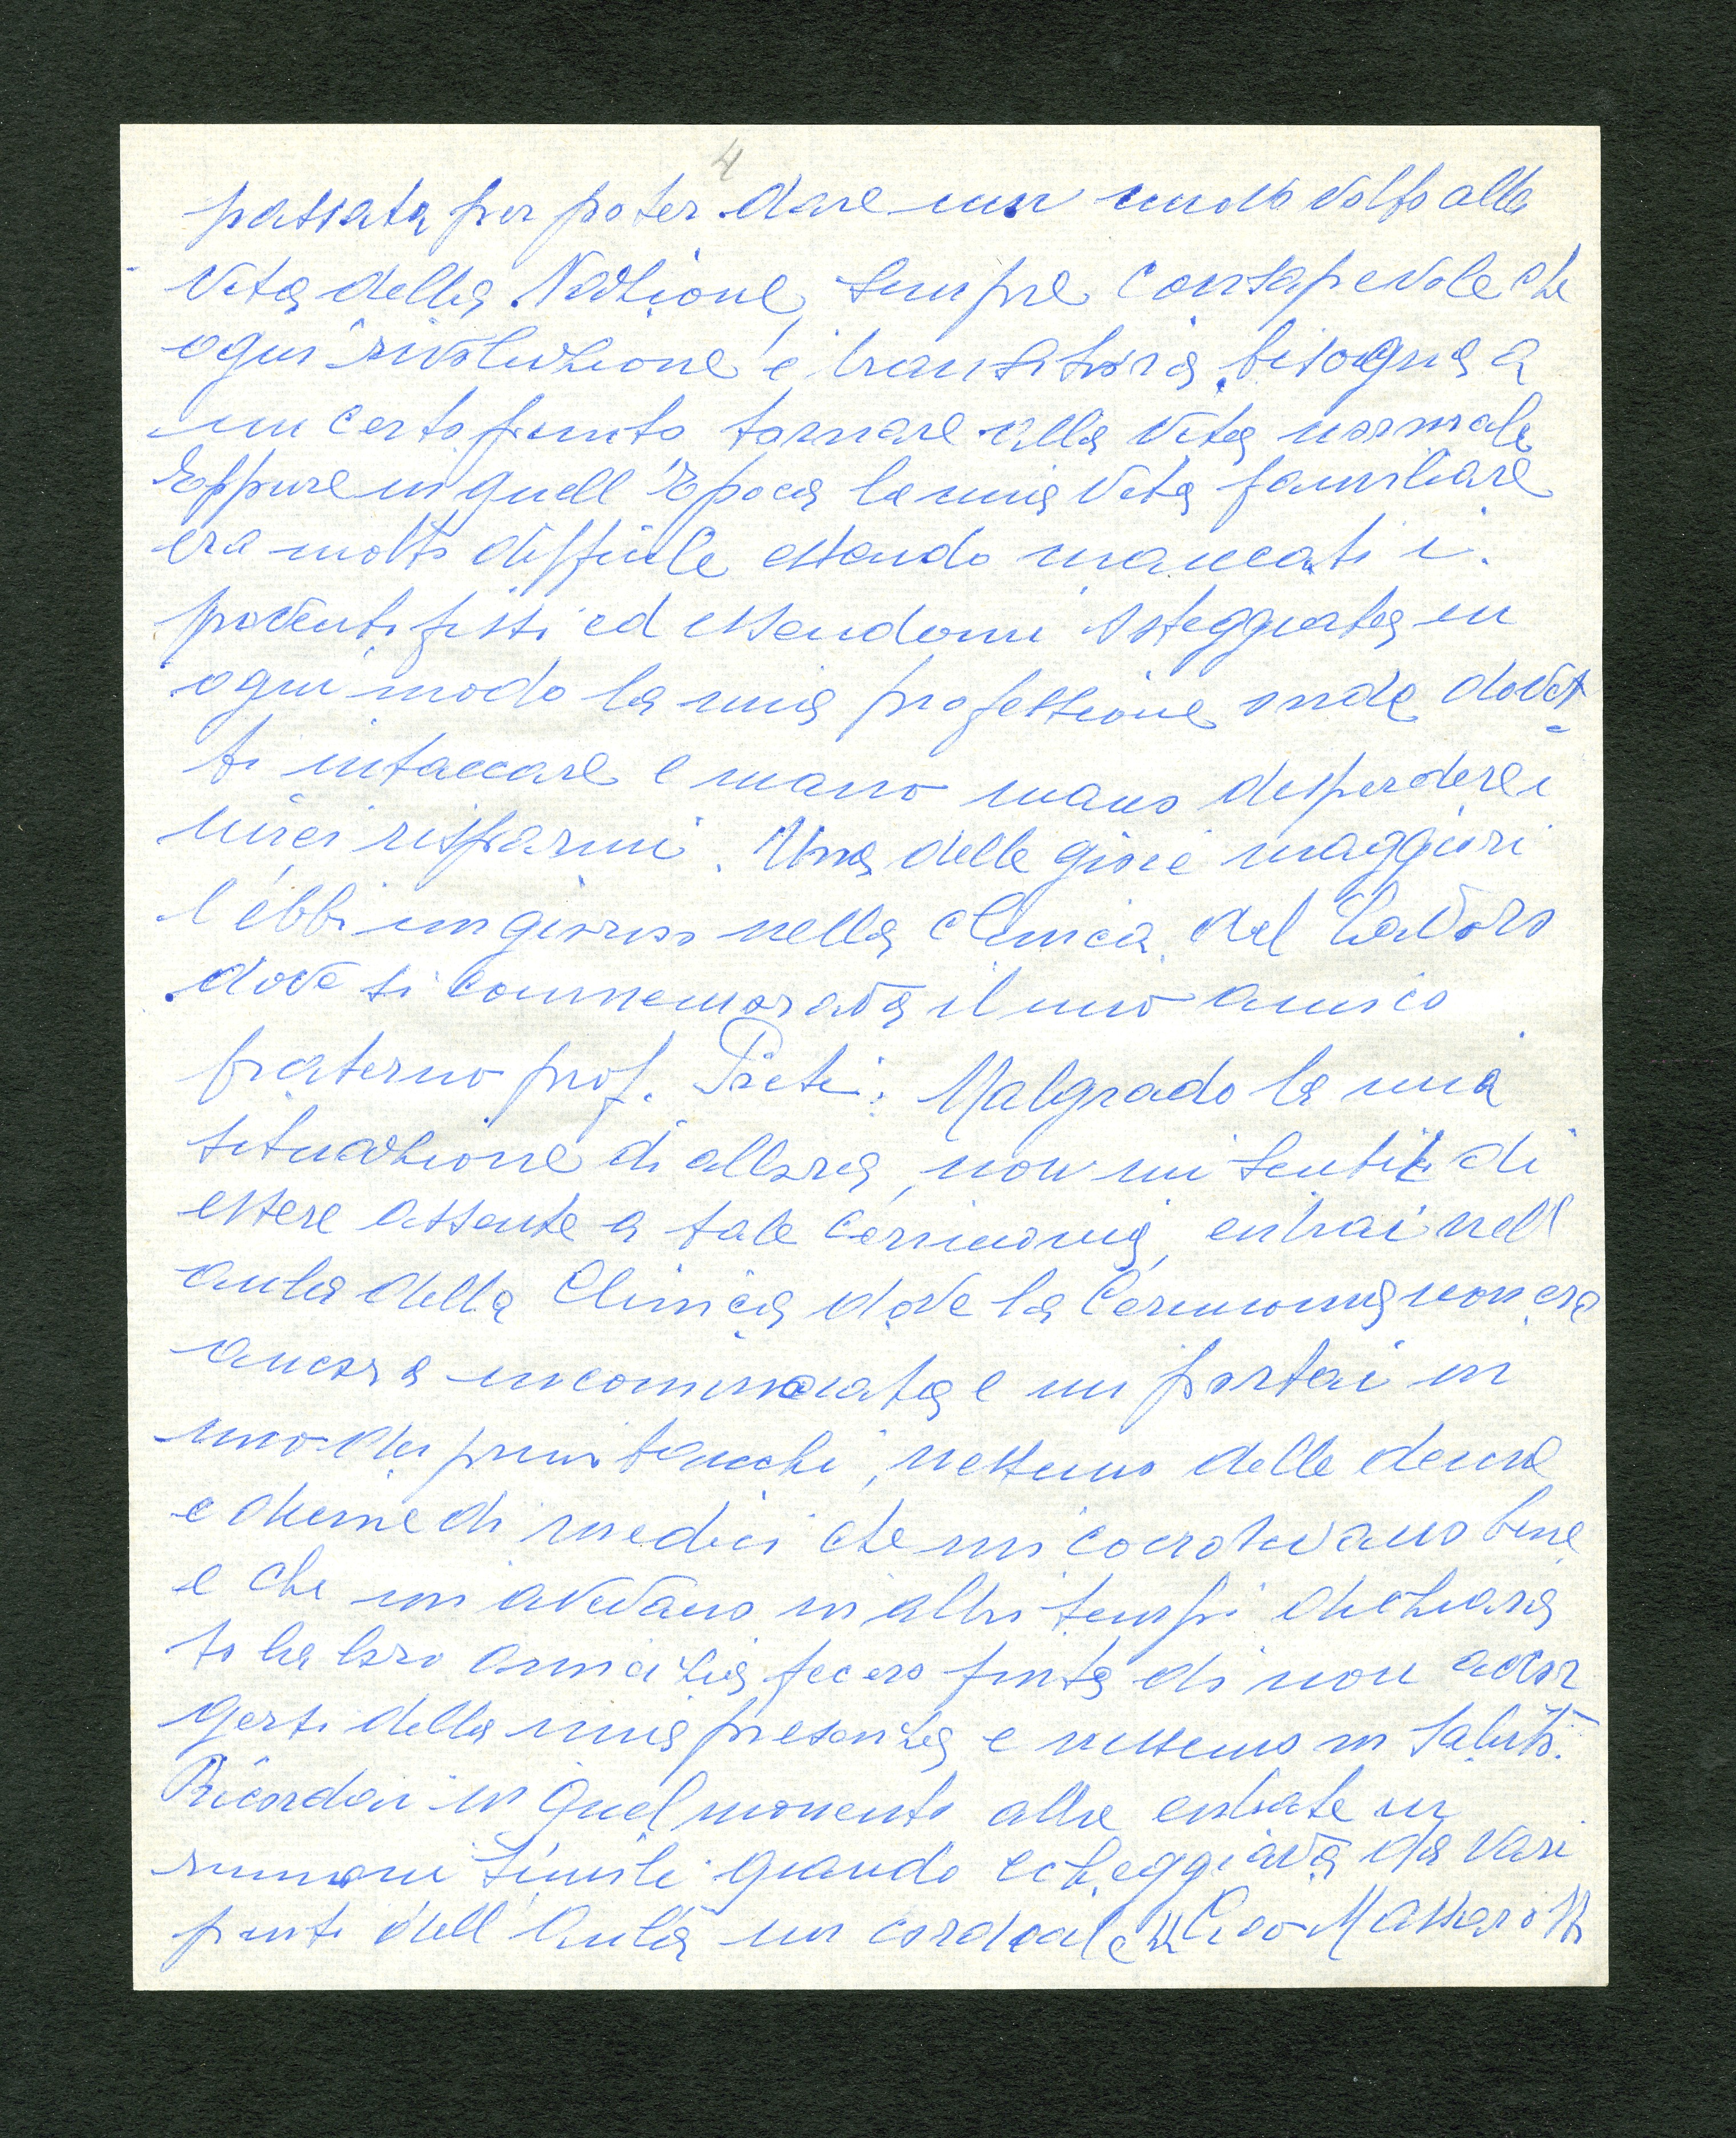 4
passata per poter dare un nuovo volto alla
vita della Nazione, sempre consapevole che
ogni rivoluzione è transitoria, bisogna a
un certo punto tornare alla vita normale
Eppure in quell'Epoca la mia vita familiare
era molto difficile essendo mancati i
proventi fissi ed essendomi osteggiata in
ogni modo la mia professione onde dovet
ti intaccare e mano mano disperdere i
miei risparmi. Una delle gioie maggiori
l'ebbi un giorno nella Clinica del Lavoro
dove si commemorava il mio amico
fraterno prof. Preti. Malgrado la mia
situazione di allora, non mi sentii di
essere assente a tale cerimonia, entrai nell
aula della Clinica dove la cerimonia non era
ancora incominciata e mi portai in
uno dei primi banchi, nessuno delle
e di medici che mi conoscevano bene
e che mi avevano in altri tempi dichiara
to la loro amicizia fecero finta di non accor
gersi della mia presenza e nessuno mi salutò.
Ricordai in quel momento altre entrate in
riunioni simili quando echeggiava da vari
punti dell'Aula un cordiale "Ciao Massarotti